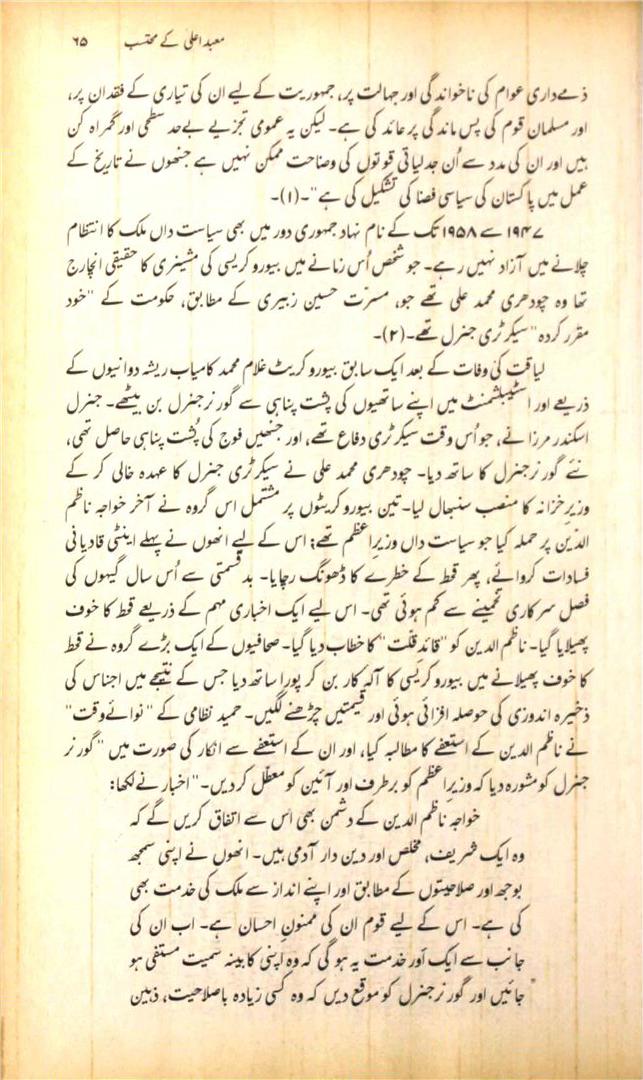 معبد اعلیٰ کے محتسب ۶۵
ذمے داری عوام کی ناخواندگی اور جہالت پر، جمہوریت کے لیے ان کی تیاری کے فقدان پر،
اور مسلمان قوم کی پس ماندگی پر عائد کی ہے۔ لیکن یہ عمومی تجزیے بے حد سطحی اور گمراہ کن
ہیں اور ان کی مدد سے اُن جدلیاتی قوتوں کی وضاحت ممکن نہیں ہے جنھوں نے تاریخ کے
عمل میں پاکستان کی سیاسی فضا کی تشکیل کی ہے"۔(۱)۔
۱۹۴۷ سے ۱۹۵۸ تک کے نام نہاد جمہوری دور میں بھی سیاست داں ملک کا انتظام
چلانے میں آزاد نہیں رہے۔ جو شخص اُس زمانے میں بیوروکریسی کی مشینری کا حقیقی انچارج
تھا وہ چودھری محمد علی تھے جو، مسرّت حسین زبیری کے مطابق، حکومت کے "خود
مقرر کردہ" سیکرٹری جنرل تھے۔(۲)۔
لیاقت کی وفات کے بعد ایک سابق بیوروکریٹ غلام محمد کامیاب ریشہ دوانیوں کے
ذریعے اور اسٹیبلشمنٹ میں اپنے ساتھیوں کی پشت پناہی سے گورنر جنرل بن بیٹھے۔ جنرل
اسکندر مرزا نے، جو اُس وقت سیکرٹری دفاع تھے، اور جنھیں فوج کی پُشت پناہی حاصل تھی،
نئے گورنر جنرل کا ساتھ دیا۔ چودھری محمد علی نے سیکرٹری جنرل کا عہدہ خالی کر کے
وزیرِ خزانہ کا منصب سنبھال لیا۔ تین بیوروکریٹوں پر مشتمل اس گروہ نے آخر خواجہ ناظم
الدّین پر حملہ کیا جو سیاست داں وزیرِاعظم تھے: اس کے لیے انھوں نے پہلے اینٹی قادیانی
فسادات کروائے، پھر قحط کے خطرے کا ڈھونگ رچایا۔ بدقسمتی سے اُس سال گیہوں کی
فصل سرکاری تخمینے سے کم ہوئی تھی۔ اس لیے ایک اخباری مہم کے ذریعے قحط کا خوف
پھیلایا گیا۔ ناظم الدین کو "قائدِ قلّت" کا خطاب دیا گیا۔ صحافیوں کے ایک بڑے گروہ نے قحط
کا خوف پھیلانے میں بیوروکریسی کا آلہ کار بن کر پورا ساتھ دیا جس کے نتیجے میں اجناس کی
ذخیرہ اندوزی کی حوصلہ افزائی ہوئی اور قیمتیں چڑھنے لگیں۔ حمید نظامی کے "نوائے وقت"
نے ناظم الدین کے استعفے کا مطالبہ کیا، اور ان کے استعفے سے انکار کی صورت میں "گورنر
جنرل کو مشورہ دیا کہ وزیرِاعظم کو برطرف اور آئین کو معطّل کر دیں۔" اخبار نے لکھا:
خواجہ ناظم الدین کے دشمن بھی اس سے اتفاق کریں گے کہ
وہ ایک شریف، مخلص اور دین دار آدمی ہیں۔ انھوں نے اپنی سمجھ
بوجھ اور صلاحیتوں کے مطابق اور اپنے انداز سے ملک کی خدمت بھی
کی ہے۔ اس کے لیے قوم ان کی ممنونِ احسان ہے۔ اب ان کی
جانب سے ایک اَور خدمت یہ ہو گی کہ وہ اپنی کابینہ سمیت مستعفی ہو
جائیں اور گورنر جنرل کو موقع دیں کہ وہ کسی زیادہ باصلاحیت، ذہین